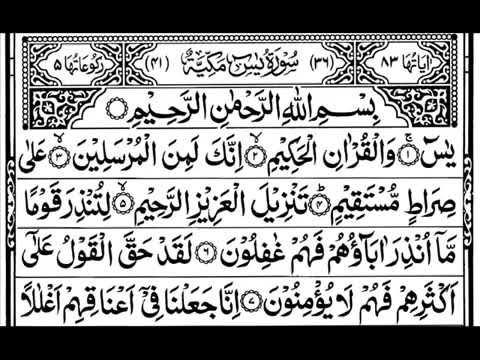 اٰیَاتُهَا ٨٣ (٣٦) سُوۡرَةُ یٰسٓ مَکِّیَّةٌ (٤١) رُکُوۡعَاتُهَا ٥
بِسۡمِ اللهِ الرَّحۡمٰنِ الرَّحِیۡمِ
یٰسٓ ۚ﴿١﴾ وَالۡقُرۡاٰنِ الۡحَکِیۡمِ ۙ﴿٢﴾ اِنَّكَ لَمِنَ الۡمُرۡسَلِیۡنَ ۙ﴿٣﴾ عَلٰی
صِرَاطٍ مُّسۡتَقِیۡمٍ ؕ﴿٤﴾ تَنۡزِیۡلَ الۡعَزِیۡزِ الرَّحِیۡمِ ۙ﴿٥﴾ لِتُنۡذِرَ قَوۡمًا
مَّاۤ اُنۡذِرَ اٰبَآؤُهُمۡ فَهُمۡ غٰفِلُوۡنَ ﴿٦﴾ لَقَدۡ حَقَّ الۡقَوۡلُ عَلٰۤی
اَکۡثَرِهِمۡ فَهُمۡ لَا یُؤۡمِنُوۡنَ ﴿٧﴾ اِنَّا جَعَلۡنَا فِیۡۤ اَعۡنَاقِهِمۡ اَغۡلٰلًا